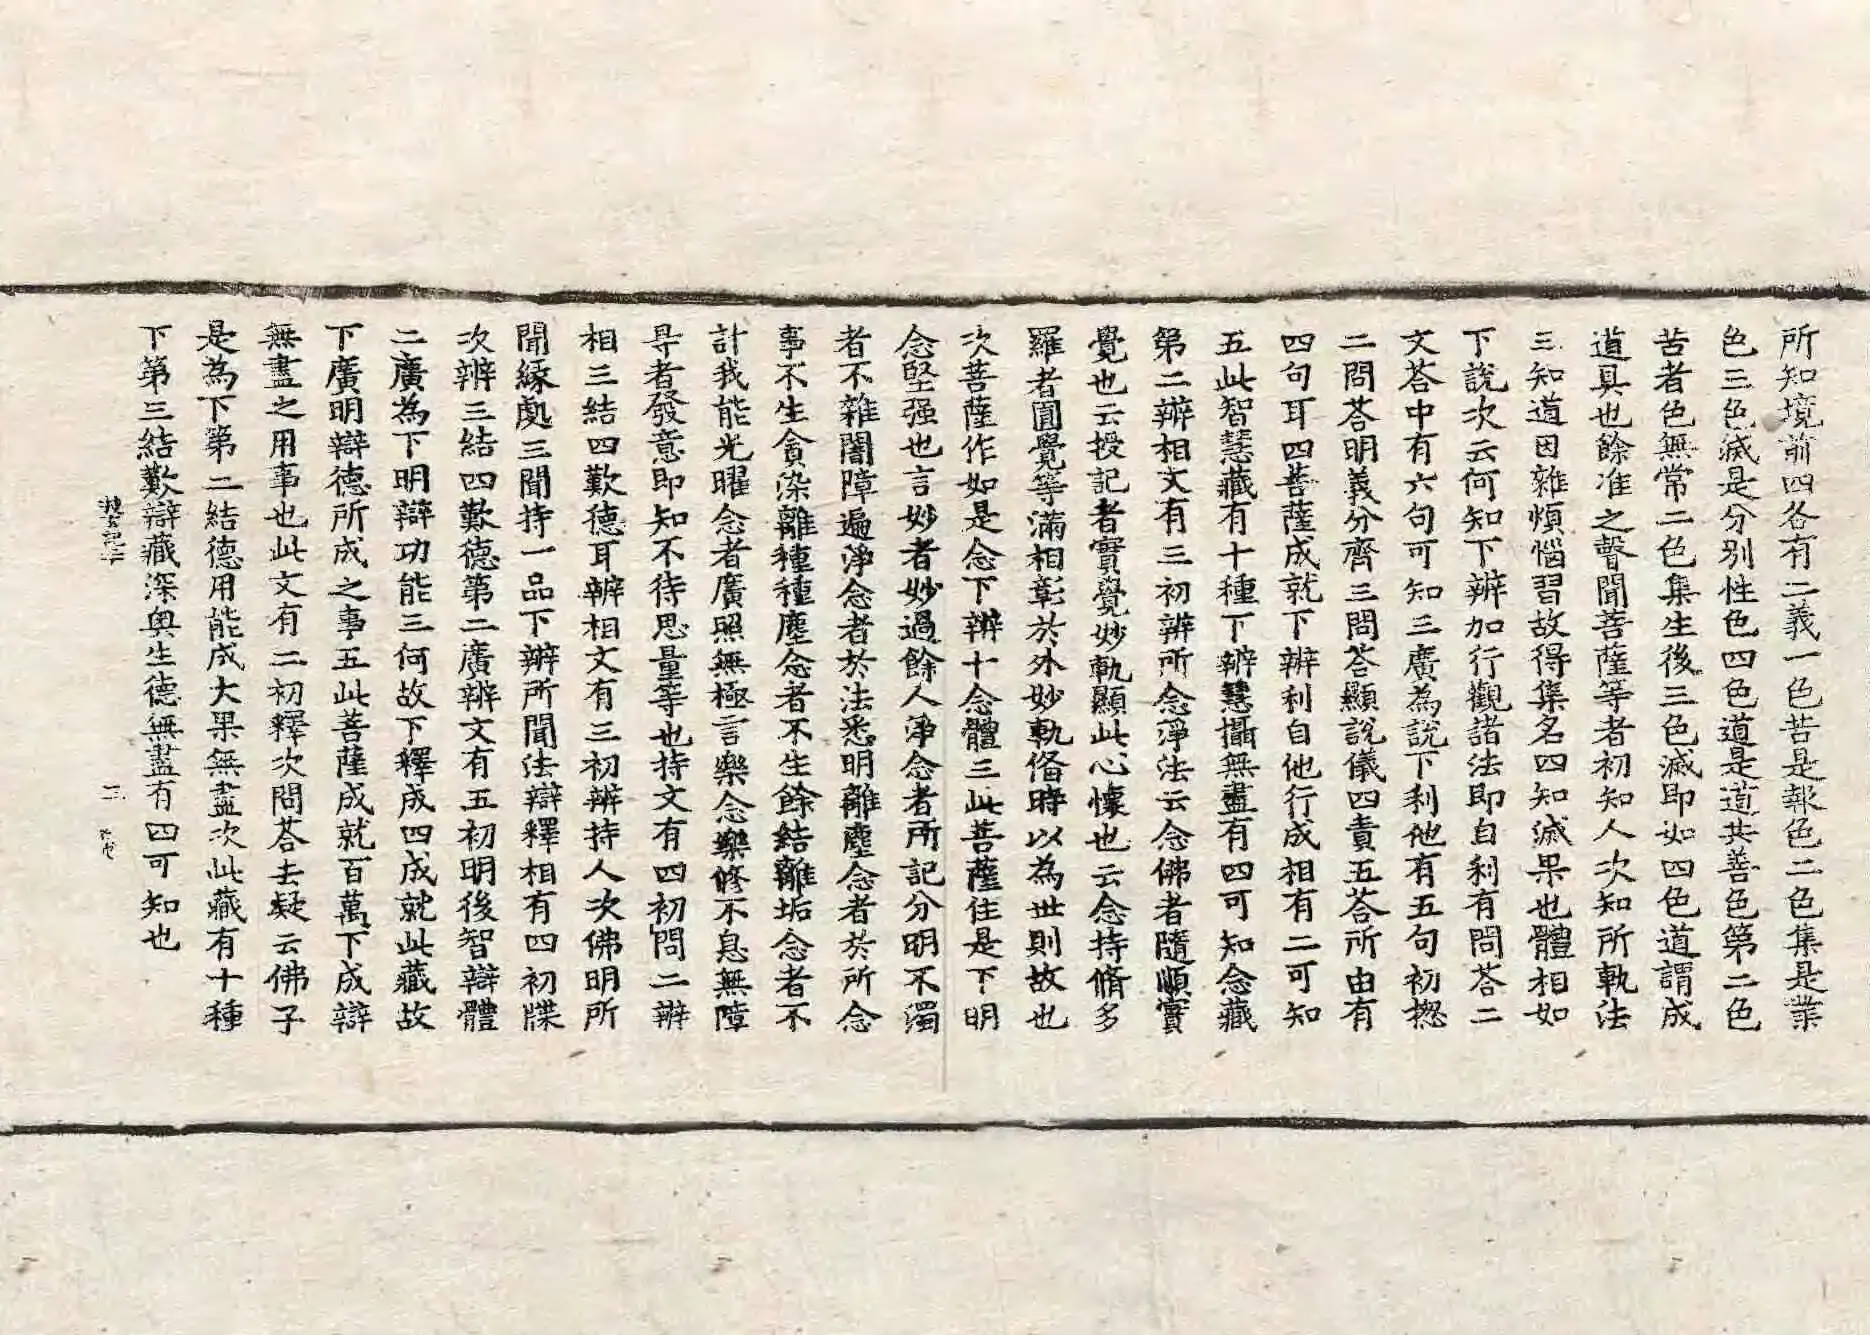 所知境前四各有二義一色苦是報色二色集是業
色三色滅是分別性色四色道是道共善色第二色
苦者色無常二色集生後三色滅即如四色道謂成
道具也餘准之聲聞菩薩等者初知人次知所軌法
三知道因雜煩惱習故得集名四知滅果也體相如
下說次云何知下辨加行觀諸法即自利有問荅二
文荅中有六句可知三廣為說下利他有五句初揔
二問荅明義分齊三問荅顯說儀四責五荅所由有
四句耳四菩薩成就下辨利自他行成相有二可知
五此智慧藏有十種下辨慧攝無盡有四可知念藏
第二辨相文有三初辨所念淨法云念佛者隨順實
覺也云授記者實覺妙軌顯此心懷也云念持脩多
羅者圓覺等滿相彰於外妙軌俻時以為世則故也
次菩薩作如是念下辨十念體三此菩薩住是下明
念堅强也言妙者妙過餘人淨念者所記分明不濁
者不雜闇障遍淨念者於法悉明離塵念者於所念
事不生貪染離種種塵念者不生餘結離垢念者不
計我能光曜念者廣照無極言樂念樂修不息無障
㝵者發意即知不待思量等也持文有四初問二辨
相三結四歎德耳辨相文有三初辨持人次佛明所
聞緣䖏三聞持一品下辨所聞法辯釋相有四初牒
次辨三結四歎德第二廣辨文有五初明後智辯體
二廣為下明辯功能三何故下釋成四成就此藏故
下廣明辯德所成之事五此菩薩成就百萬下成辯
無盡之用事也此文有二初釋次問荅去疑云佛子
是為下第二結德用能成大果無盡次此藏有十種
下第三結歎辯藏深奧生德無盡有四可知也
三